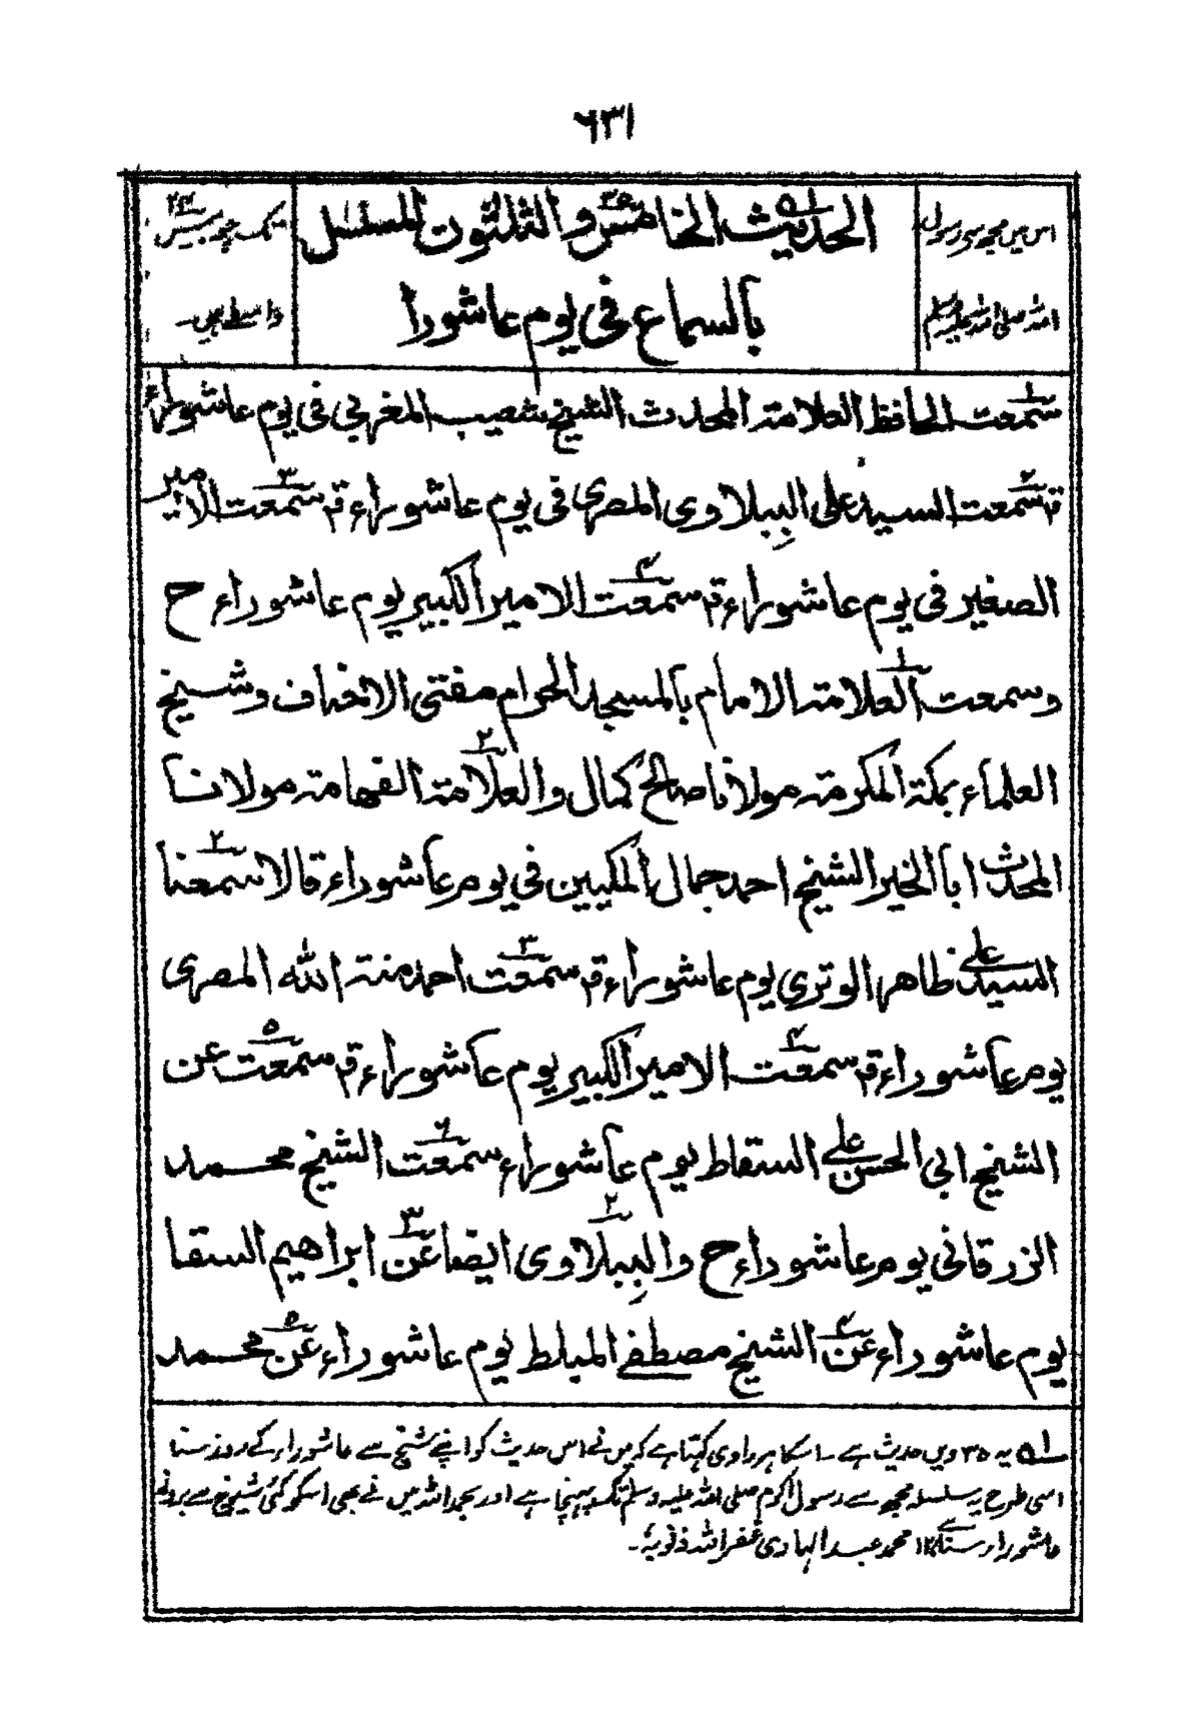 ٦٣١
اس میں مجھ سے رسول
الحدیث الخامس والثلثون المسلسل
تک چوبیس ٢٤
اللہ صلی اللہ علیہ وسلم
بالسماع فی یوم عاشورا
واسطے ہیں۔
سمعت الحافظ العلامة المحدث الشیخ شعیب المغربی فی یوم عاشوراء
قـ سمعت السید علی الببلاوی المصری فی یوم عاشوراء قـ سمعت الامیر
الصغیر فی یوم عاشوراء قـ سمعت الامیر الکبیر یوم عاشوراء ح
وسمعت العلامة الامام بالمسجد الحرام مفتی الاحناف وشیخ
العلماء بمکة المکرمة مولانا صالح کمال والعلامة الفهامة مولانا
المحدث ابا الخیر الشیخ احمد جمال المکیین فی یوم عاشوراء قالا سمعنا
السید علی ظاهر الوتری یوم عاشوراء قـ سمعت احمد منة الله المصری
یوم عاشوراء قـ سمعت الامیر الکبیر یوم عاشوراء قـ سمعت عن
الشیخ ابی الحسن علی السقاط یوم عاشوراء سمعت الشیخ محمد
الزرقانی یوم عاشوراء ح والببلاوی ایضا عن ابراهیم السقا
یوم عاشوراء عن الشیخ مصطفے المبلط یوم عاشوراء عن محمد
یہ ٣٥ ویں حدیث ہے ۔ اسکا ہر راوی کہتا ہے کہ میں نے اس حدیث کو اپنے شیخ سے عاشوراء کے روز سنا
اسی طرح یہ سلسلہ مجھ سے رسول اکرم صلی اللہ علیہ وسلم تک پہنچا ہے اور بحمد اللہ میں نے بھی اسکو کئی شیوخ سے بروز
عاشوراء سنا ہے ١٢ محمد عبدالہادی غفر اللہ ذنوبہ ۔